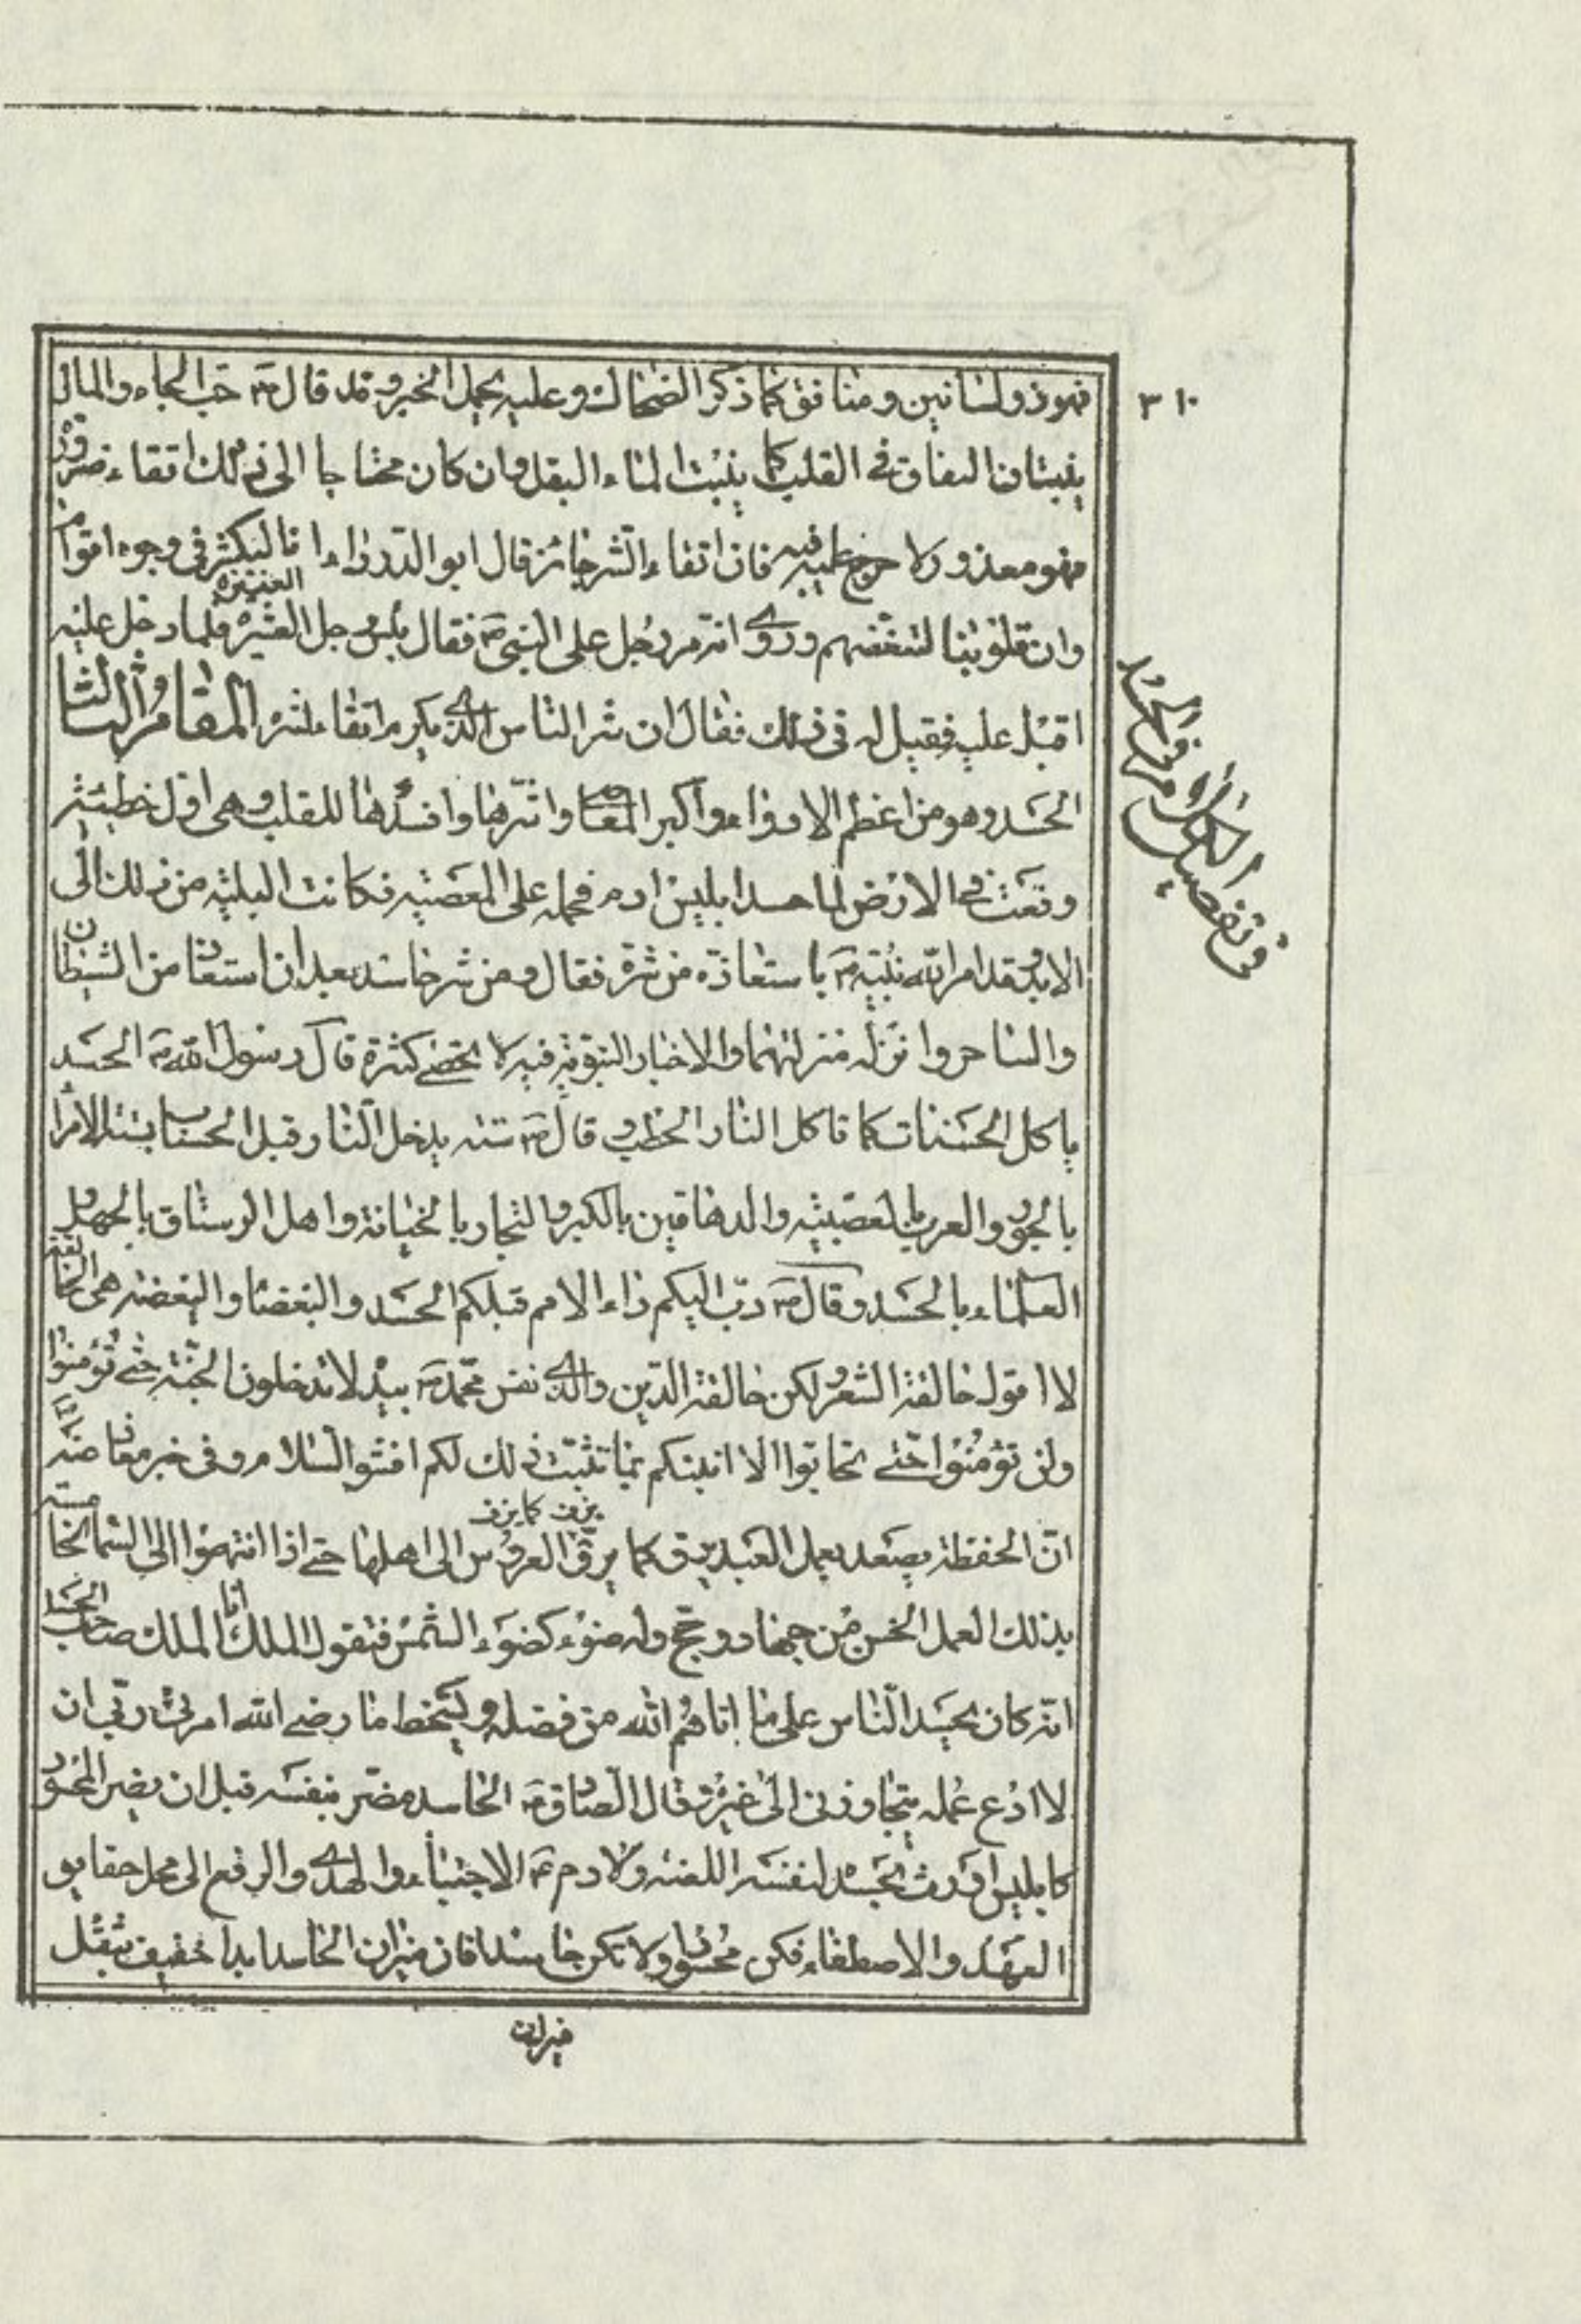 ٣١٠
فهو ذو لسانين ومنافق كما ذكر الضحاك وعليه يحمل الخبر وقد قال ص حب الجاه والمال
ينبتان النفاق في القلب كما ينبت الماء البقل وان كان محتاجا الى ذلك اتقاء ضرورة
فهو معذور ولا حرج عليه فيه فان اتقاء الشر جائز قال ابو الدرداء انا لنكشر في وجوه اقوام
وان قلوبنا لتبغضهم وروى انه مر رجل على النبي ص فقال بئس رجل العشيرة فلما دخل عليه
اقبل عليه فقيل له في ذلك فقال ان شر الناس الذي يكرم اتقاء لشره المقام الثالث
الحسد وهو من اعظم الادواء واكبر المعاصي واشرها وافسدها للقلب وهى اول خطيئة
وقعت في الارض لما حسد ابليس ادم فحمله على المعصية فكانت البلية من ذلك الى
الابد وقد امر الله نبيه ص باستعاذة من شره فقال ومن شر حاسد بعد ان استعاذ من الشيطان
والساحر وانزله منزلتهما والاخبار النبوية فيه لا تحصى كثرة قال رسول الله ص الحسد
ياكل الحسنات كما تاكل النار الحطب و قال ص ستة يدخل النار قبل الحساب بستة الامراء
بالجور والعرب بالعصبية والدهاقين بالكبر والتجار بالخيانة واهل الرستاق بالجهل و
العلماء بالحسد وقال ص دب اليكم داء الامم قبلكم الحسد والبغضاء والبغضة هى الحالقة
لا اقول حالقة الشعر ولكن حالقة الدين والذي نفس محمد ص بيده لا تدخلون الجنة حتى تؤمنوا
ولن تؤمنوا حتى تحابوا الا انبئكم بما يثبت ذلك لكم افشوا السلام وفى خبر معاذ عنه
ان الحفظة يصعد بعمل العبد يزف كما يزف العروس الى اهلها حتى اذا انتهوا الى السماء الخامسة
بذلك العمل الحسن من جهاد وحج وله ضوء كضوء الشمس فيقول الملك انا الملك صاحب الحسد
انه كان يحسد الناس على ما اتاهم الله من فضله ويسخط ما رضى الله امرنى ربي ان
لا ادع عمله يتجاوزنى الى غيرى وقال الصادق ع الحاسد مضر بنفسه قبل ان يضر المحسود
كابليس اورث بحسده لنفسه اللعنة ولادم ع الاجتباء والهدى والرفع الى محل حقايق
العهد والاصطفاء فكن محسودا ولا تكن حاسدا فان ميزان الحاسد ابدا خفيف بثقل
ميزان